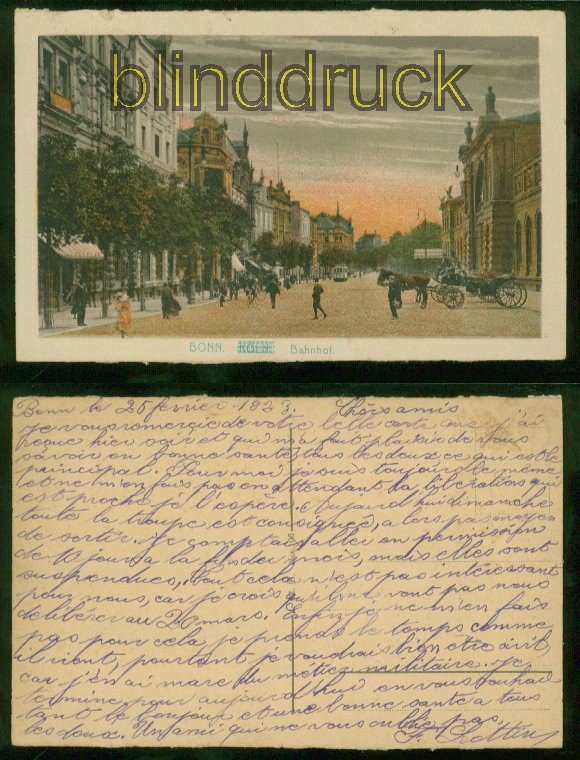 blinddruck
BONN. Bahnhof.
Bonn le 25 février 1923. Chers amis
je vous remercie de votre belle carte que j'ai
reçue hier soir et qui m'a fait plaisir de vous
savoir en bonne santé tous les deux ce qui est le
principal. Pour moi, je suis toujours le même
et ne m'en fais pas en attendant la libération qui
est proche je l'espère. Aujourd'hui dimanche
toute la troupe est consignée, alors pas moyen
de sortir. Je comptais aller en permission
de 10 jours à la fin du mois, mais elles sont
suspendues, tout cela n'est pas intéressant
pour nous, car je crois qu'ils ne vont pas nous
délibérer au 20 mars. Enfin je ne m'en fais
pas pour cela, je prends le temps comme
il vient, pourtant je voudrais bien être civil,
car j'en ai marre du métier militaire. Je
termine pour aujourd'hui en vous souhait
tant le bonjour et une bonne santé à tous
les deux. Un ami qui ne vous oublie pas.